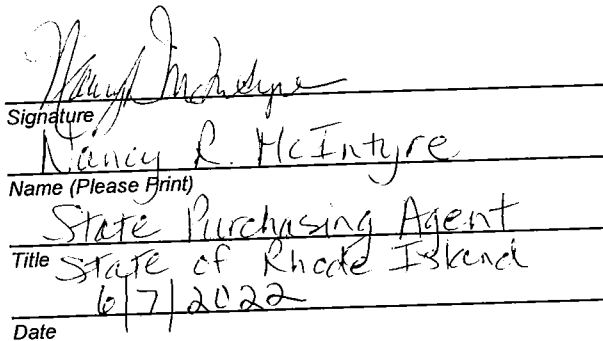 Nancy R. McIntyre
Signature
Nancy R. McIntyre
Name (Please Print)
State Purchasing Agent
Title State of Rhode Island
6/7/2022
Date